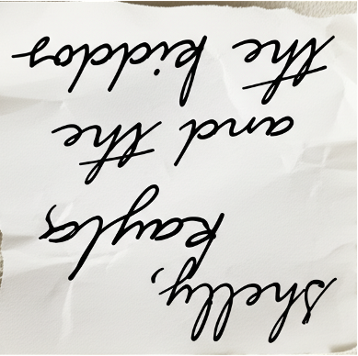 Shelly,
Kayla,
and the
the kiddos